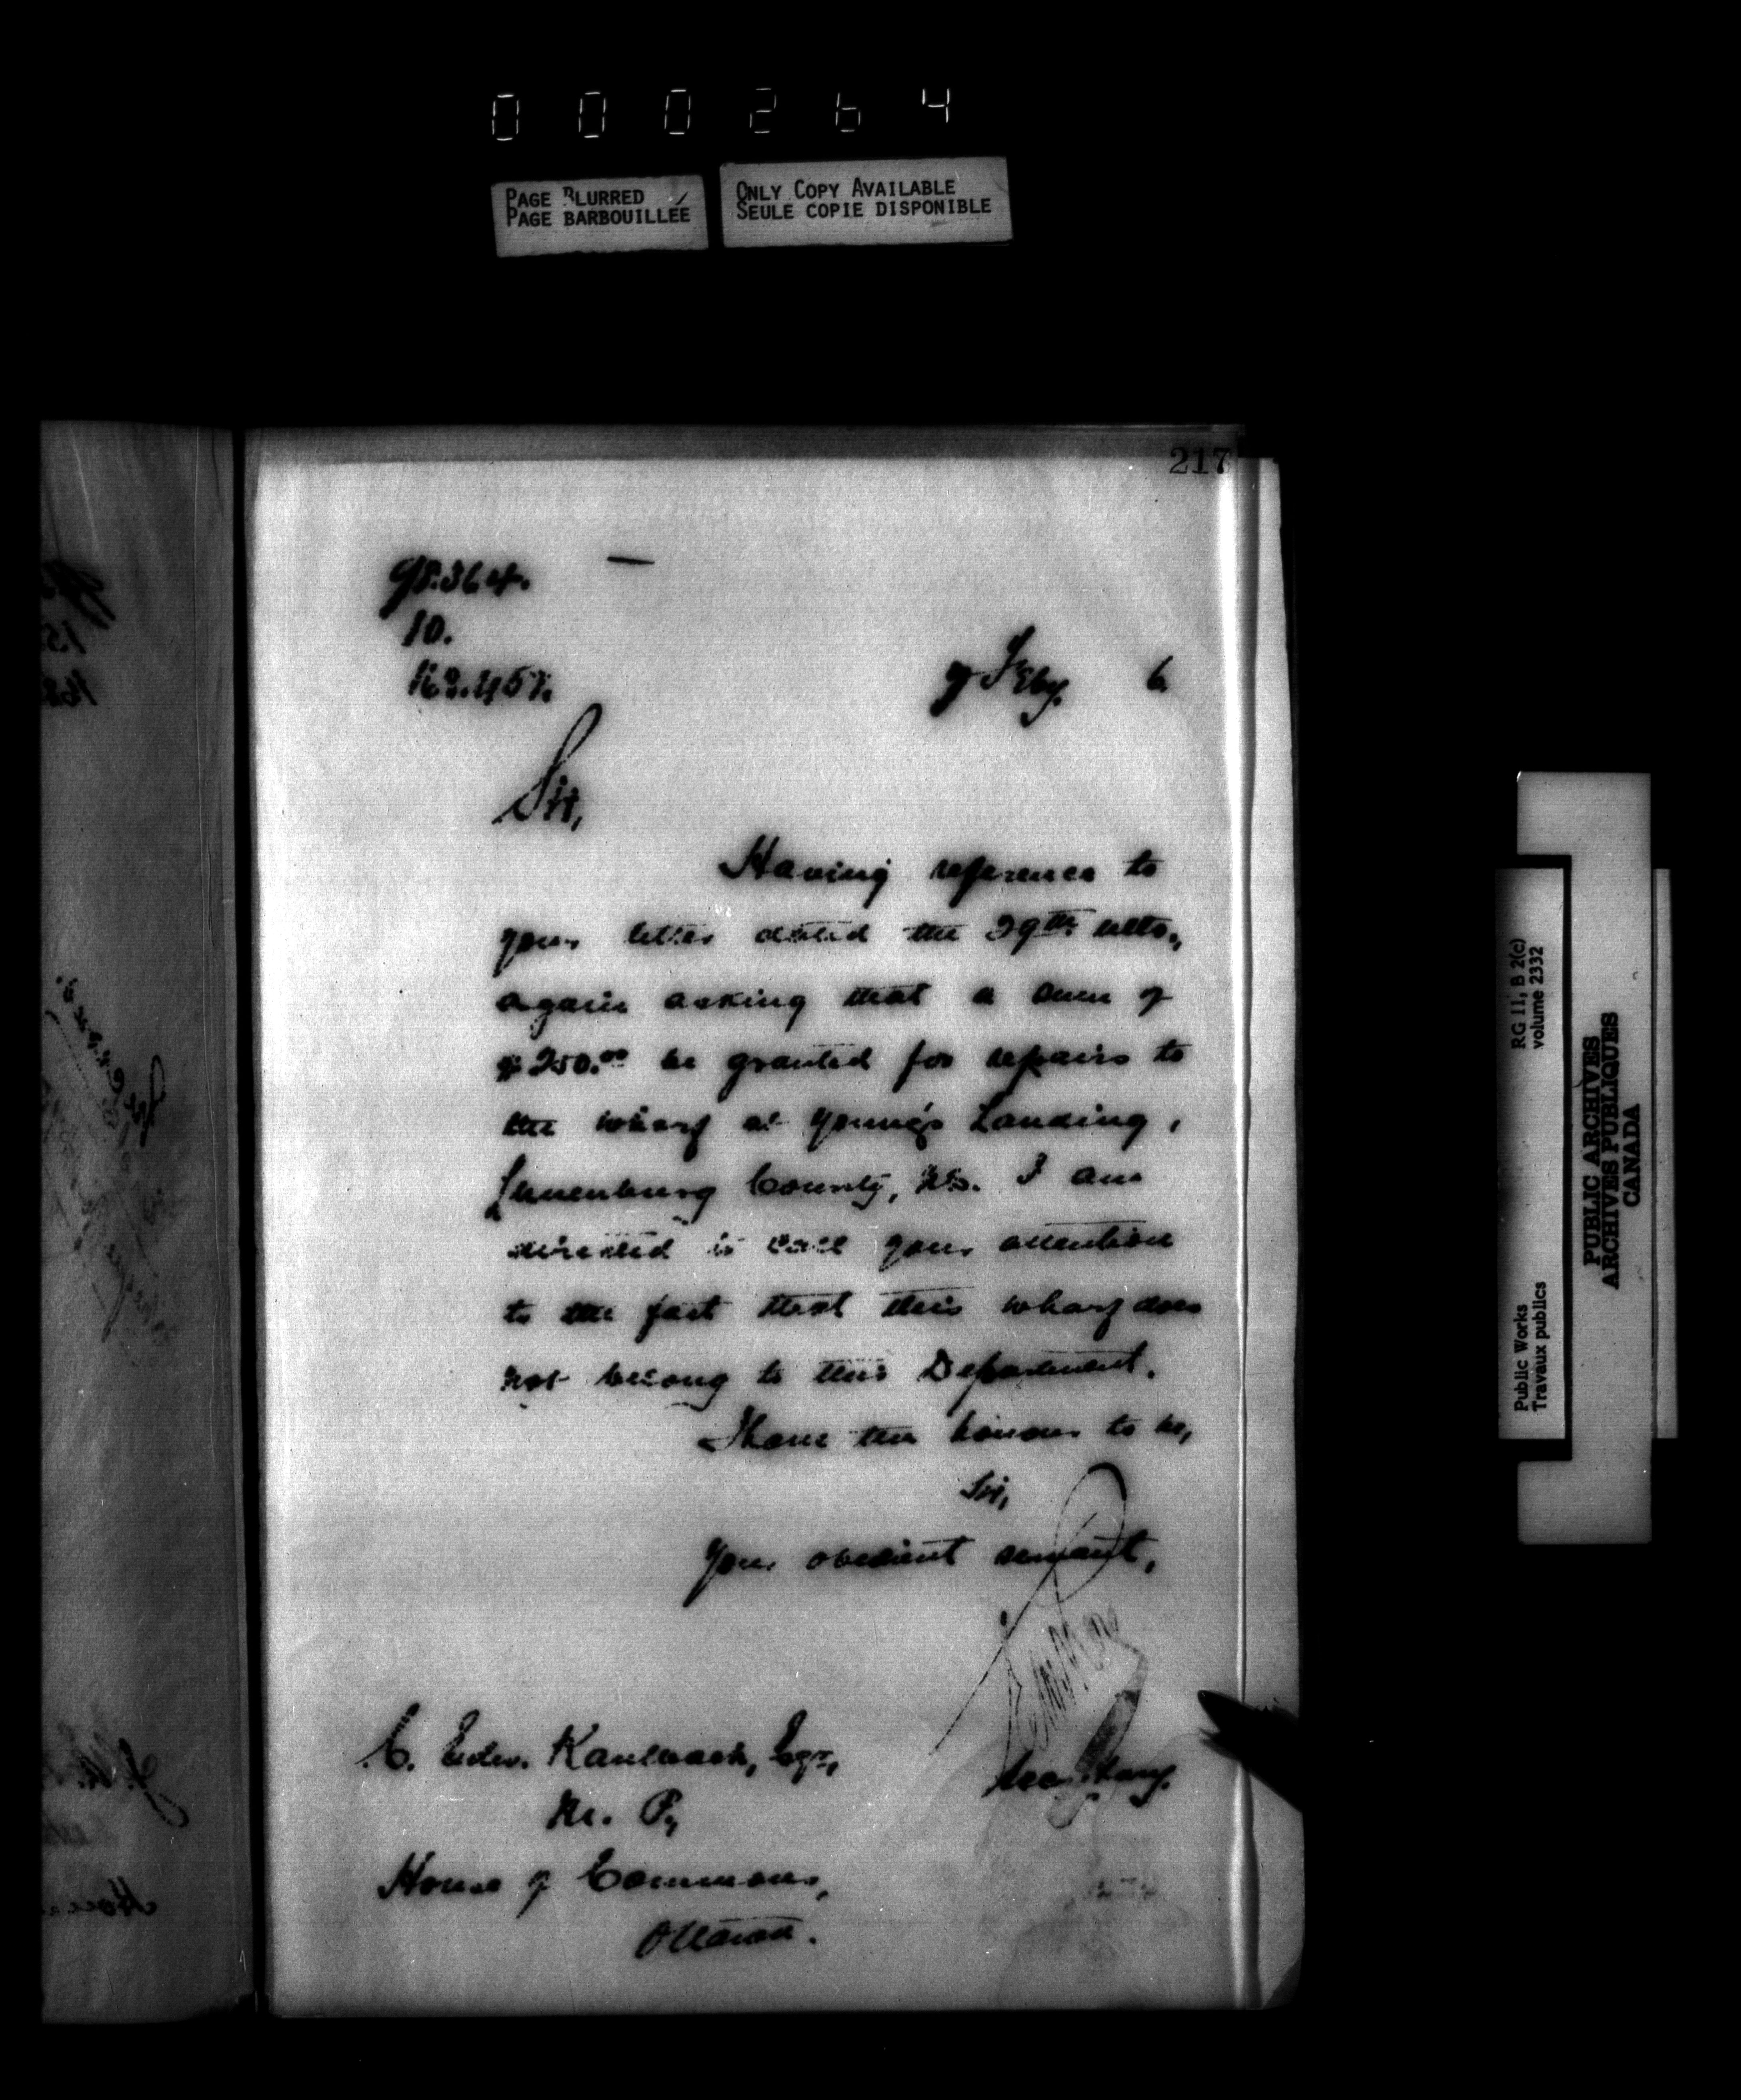 000264
PAGE BLURRED
PAGE BARBOUILLÉE
ONLY COPY AVAILABLE
SEULE COPIE DISPONIBLE
217
10.
7 Feby. 6
Sir,
Having reference to
your letter dated the 29th ulto.,
again asking that a sum of
$250.00 be granted for repairs to
the wharf at Young's Landing,
Lunenburg County, N.S. I am
directed to call your attention
to the fact that this wharf does
not belong to this Department.
I have the honour to be,
Sir,
Your obedient servant,
Secretary.
C. Edw. Kaulbach, Esqr.,
M. P.,
House of Commons,
Ottawa.
RG 11, B 2(c)
volume 2332
Public Works
Travaux publics
PUBLIC ARCHIVES
ARCHIVES PUBLIQUES
CANADA